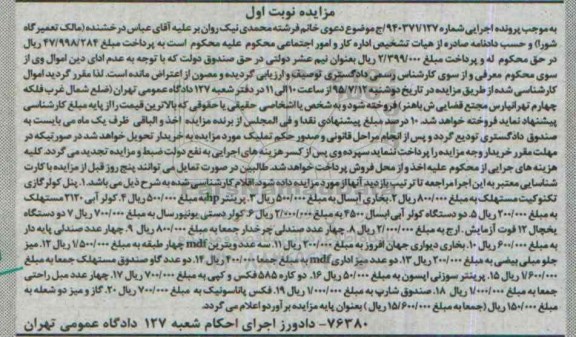 مزایده نوبت اول
به موجب پرونده اجرایی شماره ۹۴۰۳۷۱/۱۲۷/ج موضوع دعوی خانم فرشته محمدی نیک روان بر علیه آقای عباس درخشنده (مالک تعمیرگاه
شورا) و حسب دادنامه صادره از هیات تشخیص اداره کار و امور اجتماعی محکوم علیه محکوم است به پرداخت مبلغ ۴۷/۹۹۸/۲۸۴ ریال
در حق محکوم له و پرداخت مبلغ ۲/۳۹۹/۰۰۰ ریال به عنوان نیم عشر دولتی در حق صندوق دولت که با توجه به عدم ادای دین اموال وی از
سوی محکوم معرفی و از سوی کارشناس رسمی دادگستری توصیف و ارزیابی گردیده و مصون از اعتراض مانده است. لذا مقرر گردید اموال
کارشناسی شده از طریق مزایده در تاریخ دوشنبه ۹۵/۷/ از ساعت ۱۰ الی ۱۱ در دفتر شعبه ۱۲۷ دادگاه عمومی تهران (ضلع شمال غرب فلکه
چهارم تهرانپارس مجتمع قضایی ش باهنر) فروخته شود و به شخص یا اشخاصی حقیقی یا حقوقی که بالاترین قیمت را از پایه مبلغ کارشناسی
پیشنهاد نماید فروخته خواهد شد. ۱۰ درصد مبلغ پیشنهادی نقدا و فی المجلس از برنده مزایده اخذ و الباقی ظرف یک ماه می بایست به
صندوق دادگستری تودیع گردد و پس از انجام مراحل قانونی و صدور حکم تملیک مورد مزایده به خریدار تحویل خواهد شد در صورتیکه در
مهلت مقرر خریدار وجه مزایده را پرداخت ننماید سپرده وی پس از کسر هزینه های اجرایی به نفع دولت ضبط و مزایده تجدید می گردد. کلیه
هزینه های اجرایی از محکوم علیه اخذ و از محل فروش پرداخت خواهد شد. طالبین در صورت تمایل می توانند پنج روز قبل از مزایده با کارت
شناسایی معتبر به این اجرا مراجعه تا ترتیب بازدید آنها از مورد مزایده داده شود. اقلام کارشناسی شده به شرح ذیل می باشد ۱. پنل کولر گازی
تکنو کیت مستهلک به مبلغ ۸۰۰/۰۰۰ ریال ۲. بخاری آبسال به مبلغ ۵۰۰/۰۰۰ ریال ۳. پرینتر hp به مبلغ ۵۰۰/۰۰۰ ریال ۴. کولر آبی ۲۱۳۰ مستهلک
به مبلغ ۲۰۰/۰۰۰ ریال ۵. دو دستگاه کولر آبی آبسال ۴۵۰۰ به مبلغ ۲/۰۰۰/۰۰۰ ریال ۶. کولر دستی یونیورسال به مبلغ ۷۰۰/۰۰۰ ریال ۷. دو دستگاه
یخچال ۱۲ فوت آزمایش . ارج به مبلغ ۲/۰۰۰/۰۰۰ ریال ۸. چهار عدد صندلی چرخدار جمعا به مبلغ ۸۰۰/۰۰۰ ریال ۹. چهار عدد صندلی پایه دار
به مبلغ ۶۰۰/۰۰۰ ریال ۱۰. بخاری دیواری جهان افروز به مبلغ ۲۰۰/۰۰۰ ریال ۱۱. سه عدد ویترین mdf چهار طبقه به مبلغ ۱/۵۰۰/۰۰۰ ریال ۱۲. میز
جلو مبلی بیضی به مبلغ ۲۰۰/۰۰۰ ریال ۱۳. دو عدد میز اداری mdf به مبلغ جمعا ۴۰۰/۰۰۰ ریال ۱۴. دو عدد گاو صندوق مستهلک جمعا به مبلغ
۱/۶۰۰/۰۰۰ ریال ۱۵. پرینتر سوزنی اپسون به مبلغ ۵۰/۰۰۰ ریال ۱۶. دو کاره ۵۸۵ فکس و کپی به مبلغ ۷۰۰/۰۰۰ ریال ۱۷. چهار عدد مبل راحتی
جمعا به مبلغ ۱/۰۰۰/۰۰۰ ریال ۱۸. صندوق شارپ به مبلغ ۱/۰۰۰/۰۰۰ ریال ۱۹. فکس پاناسونیک به مبلغ ۷۰۰/۰۰۰ ریال ۲۰. گاز و میز دو شعله به
مبلغ ۱۵۰/۰۰۰ ریال (جمعا به مبلغ ۱۵/۶۰۰/۰۰۰ ریال) بعنوان پایه مزایده برآورد و اعلام می گردد.
۷۶۳۸۰- دادورز اجرای احکام شعبه ۱۲۷ دادگاه عمومی تهران